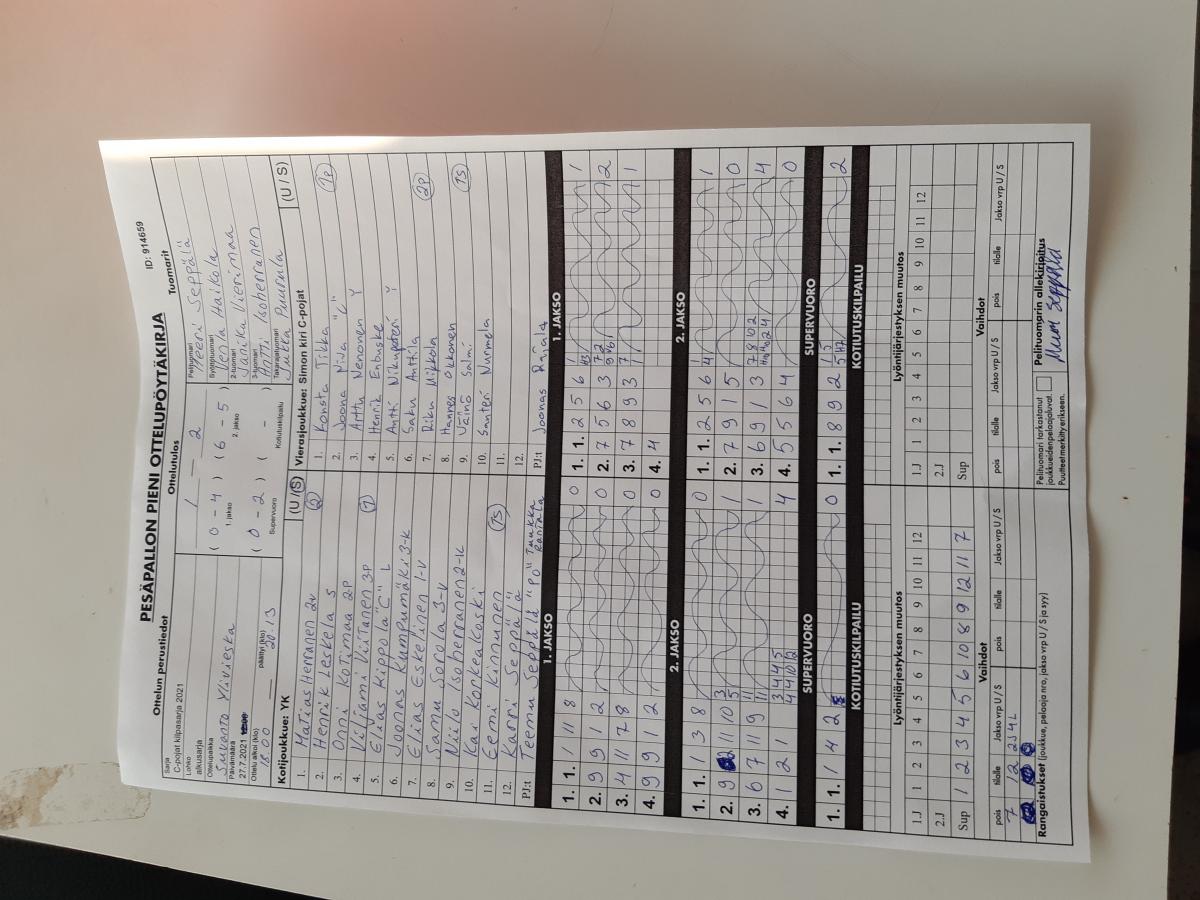 PESÄPALLON PIENI OTTELUPÖYTÄKIRJA
ID: 914659
Ottelun perustiedot
Ottelutulos
Tuomarit
Sarja
C-pojat kilpasarja 2021
Lohko
alkusarja
Ottelupaikka
Suvanto Ylivieska
Päivämäärä
27.7.2021
Ottelu alkoi (klo)
18.00
päättyi (klo)
20.13
1 – 2
( 0 – 4 ) ( 6 – 5 )
1. jakso
2. jakso
( 0 – 2 ) ( – )
Supervuoro
Kotiutuskilpailu
Pelituomari
Meeri Seppälä
Syöttötuomari
Venla Haikola
2-tuomari
Janika Vierimaa
3-tuomari
Antti Isoherranen
Takarajatuomari
Jukka Puurula
Kotijoukkue: YK
(U / S)
1. Matias Herranen 2v
2. Henrik Leskelä S
3. Onni Kotimaa 2P
4. Viljami Viitanen 3P
5. Elias Kippola "C" L
6. Joonas Kumpumäki 3-K
7. Elias Eskelinen 1-V
8. Samu Sorola 3-V
9. Niilo Isoherranen 2-K
10. Kai Konkeakoski
11. Eemi Kinnunen
12. Karri Seppälä
PJ:t Teemu Seppälä "PO" Tuukka Rantala
Vierasjoukkue: Simon kiri C-pojat
(U / S)
1. Konsta Tikka
2. Joona Nija "C"
3. Arttu Nenonen
4. Henrik Enbuske
5. Antti Nikupeteri
6. Saku Anttila
7. Riku Mikkola
8. Hannes Okkonen
9. Väinö Salmi
10. Santeri Nurmela
11.
12.
PJ:t Joonas Rinnala
1. JAKSO
1. JAKSO
1. 1. 1 11 8 0
2. 9 9 1 2 0
3. 4 11 7 8 0
4. 9 9 11 2 0
1. 1. 2 5 6 1
2. 7 5 6 3 2
3. 7 8 9 3 1
4. 4
2. JAKSO
2. JAKSO
1. 1. 1 3 8 0
2. 9 11 10 1
3. 6 7 11 9 1
4. 1 2 1 4
1. 1. 2 5 6 1
2. 7 9 1 5 0
3. 6 9 1 3 4
4. 5 5 6 4 0
SUPERVUORO
SUPERVUORO
1. 1. 1 4 2 0
1. 1. 8 9 2 2
KOTIUTUSKILPAILU
KOTIUTUSKILPAILU
Lyöntijärjestyksen muutos
Lyöntijärjestyksen muutos
1.J 1 2 3 4 5 6 7 8 9 10 11 12
2.J
Sup 1 2 3 4 5 6 10 8 9 12 11 7
1.J 1 2 3 4 5 6 7 8 9 10 11 12
2.J
Sup
Vaihdot
Vaihdot
pois tilalle Jakso vrp U / S pois tilalle Jakso vrp U / S
7 12 2J4L
pois tilalle Jakso vrp U / S pois tilalle Jakso vrp U / S
Rangaistukset (joukkue, pelaaja nro, jakso vrp U / S ja syy)
Pelituomari tarkastanut
joukkueidenpeloajaluvat.
Puutteet merkityerikseen.
Pelituomarin allekirjoitus
Meeri Seppälä